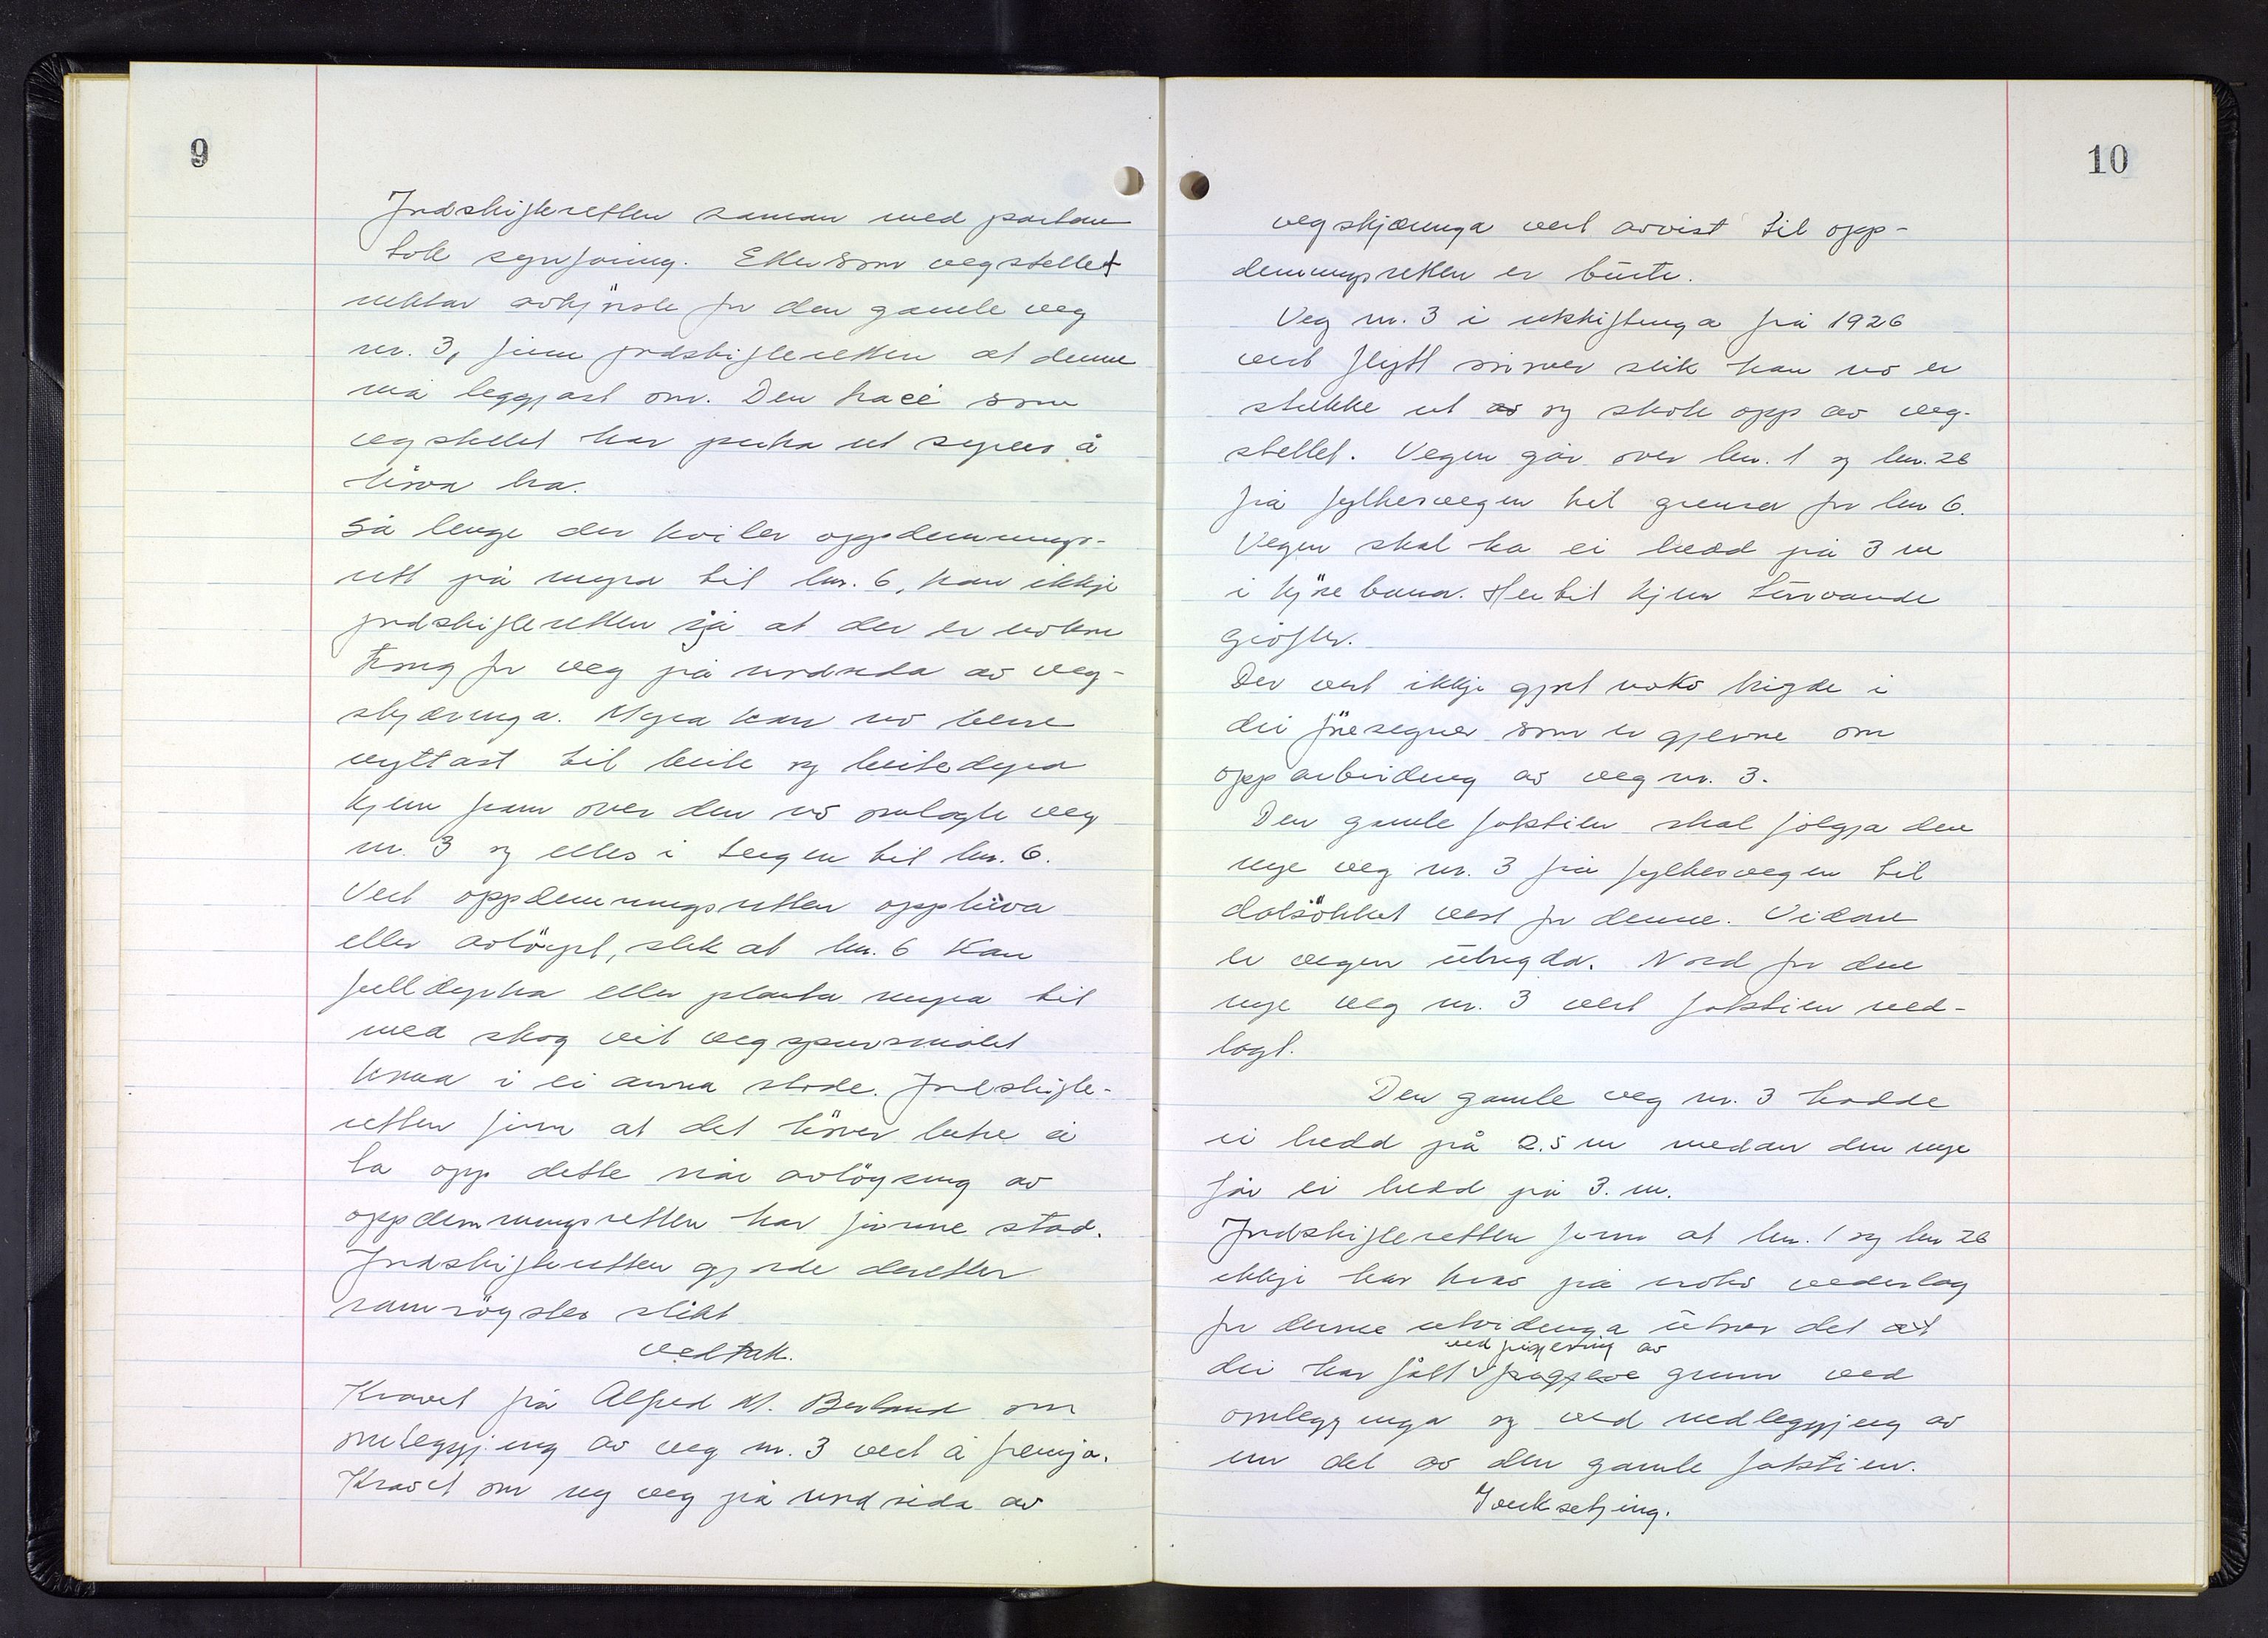 9
Jordskifteretten saman med partane
tok synfaring. Ettersom vegstellet
nektar avkjörsle for den gamle veg
nr. 3, finn jordskifteretten at denne
må leggjast om. Den tracé som
vegstellet har peika ut synes å
höva bra.
Så lenge der kviler oppdemmings-
rett på myra til bnr. 6, kan ikkje
jordskifteretten sjå at der er nokon
trong for veg på nordsida av veg-
skjæringa. Myra kan no berre
nyttast til beite og beitedyra
kjem fram over den no omlagte veg
nr. 3 og elles i teigen til bnr. 6.
Vert oppdemmingsretten oppheva
eller avlöyst, slik at bnr. 6 kan
fulldyrka eller planta myra til
med skog vil vegspursmålet
koma i ei anna stode. Jordskifte-
retten finn at det höver betre å
ta opp dette når avlöysing av
oppdemmingsretten har funne stad.
Jordskifteretten gjorde deretter
samröystes slikt
vedtak.
Kravet frå Alfred M. Berland om
omleggjing av veg nr. 3 vert å fremja.
Kravet om ny veg på nordsida av
10
vegskjæringa vert avvist til opp-
demmingsretten er burte.
Veg nr. 3 i utskiftinga frå 1926
vert flytt slik han no er
stukke ut og skote opp av veg-
stellet. Vegen går over bnr. 1 og bnr. 26
frå fylkesvegen til grensa for bnr 6.
Vegen skal ha ei breidd på 3 m
i köyrebana. Hertil kjem turvande
gröfter.
Der vert ikkje gjort noko brigde i
dei föresegner som er gjevne om
opparbeiding av veg nr. 3.
Den gamle fotstien skal fölgja den
nye veg nr. 3 frå fylkesvegen til
dalsökket vest for denne. Vidare
er vegen ubrigda. Nord for den
nye veg nr. 3 vert fotstien ned-
lagt.
Den gamle veg nr. 3 hadde
ei breidd på 2.5 m medan den nye
får ei breidd på 3. m.
Jordskifteretten finn at bnr. 1 og bnr 26
ikkje har krav på noko vederlag
for denne utvidinga utover det at
ved frigjering av
dei har fått grunn ved
omlegginga og ved nedleggjing av
ein del av den gamle fotstien.
Iverksetjing.